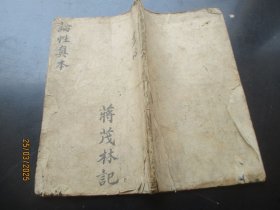 論性奥本
蔣茂林記
25/03/2025